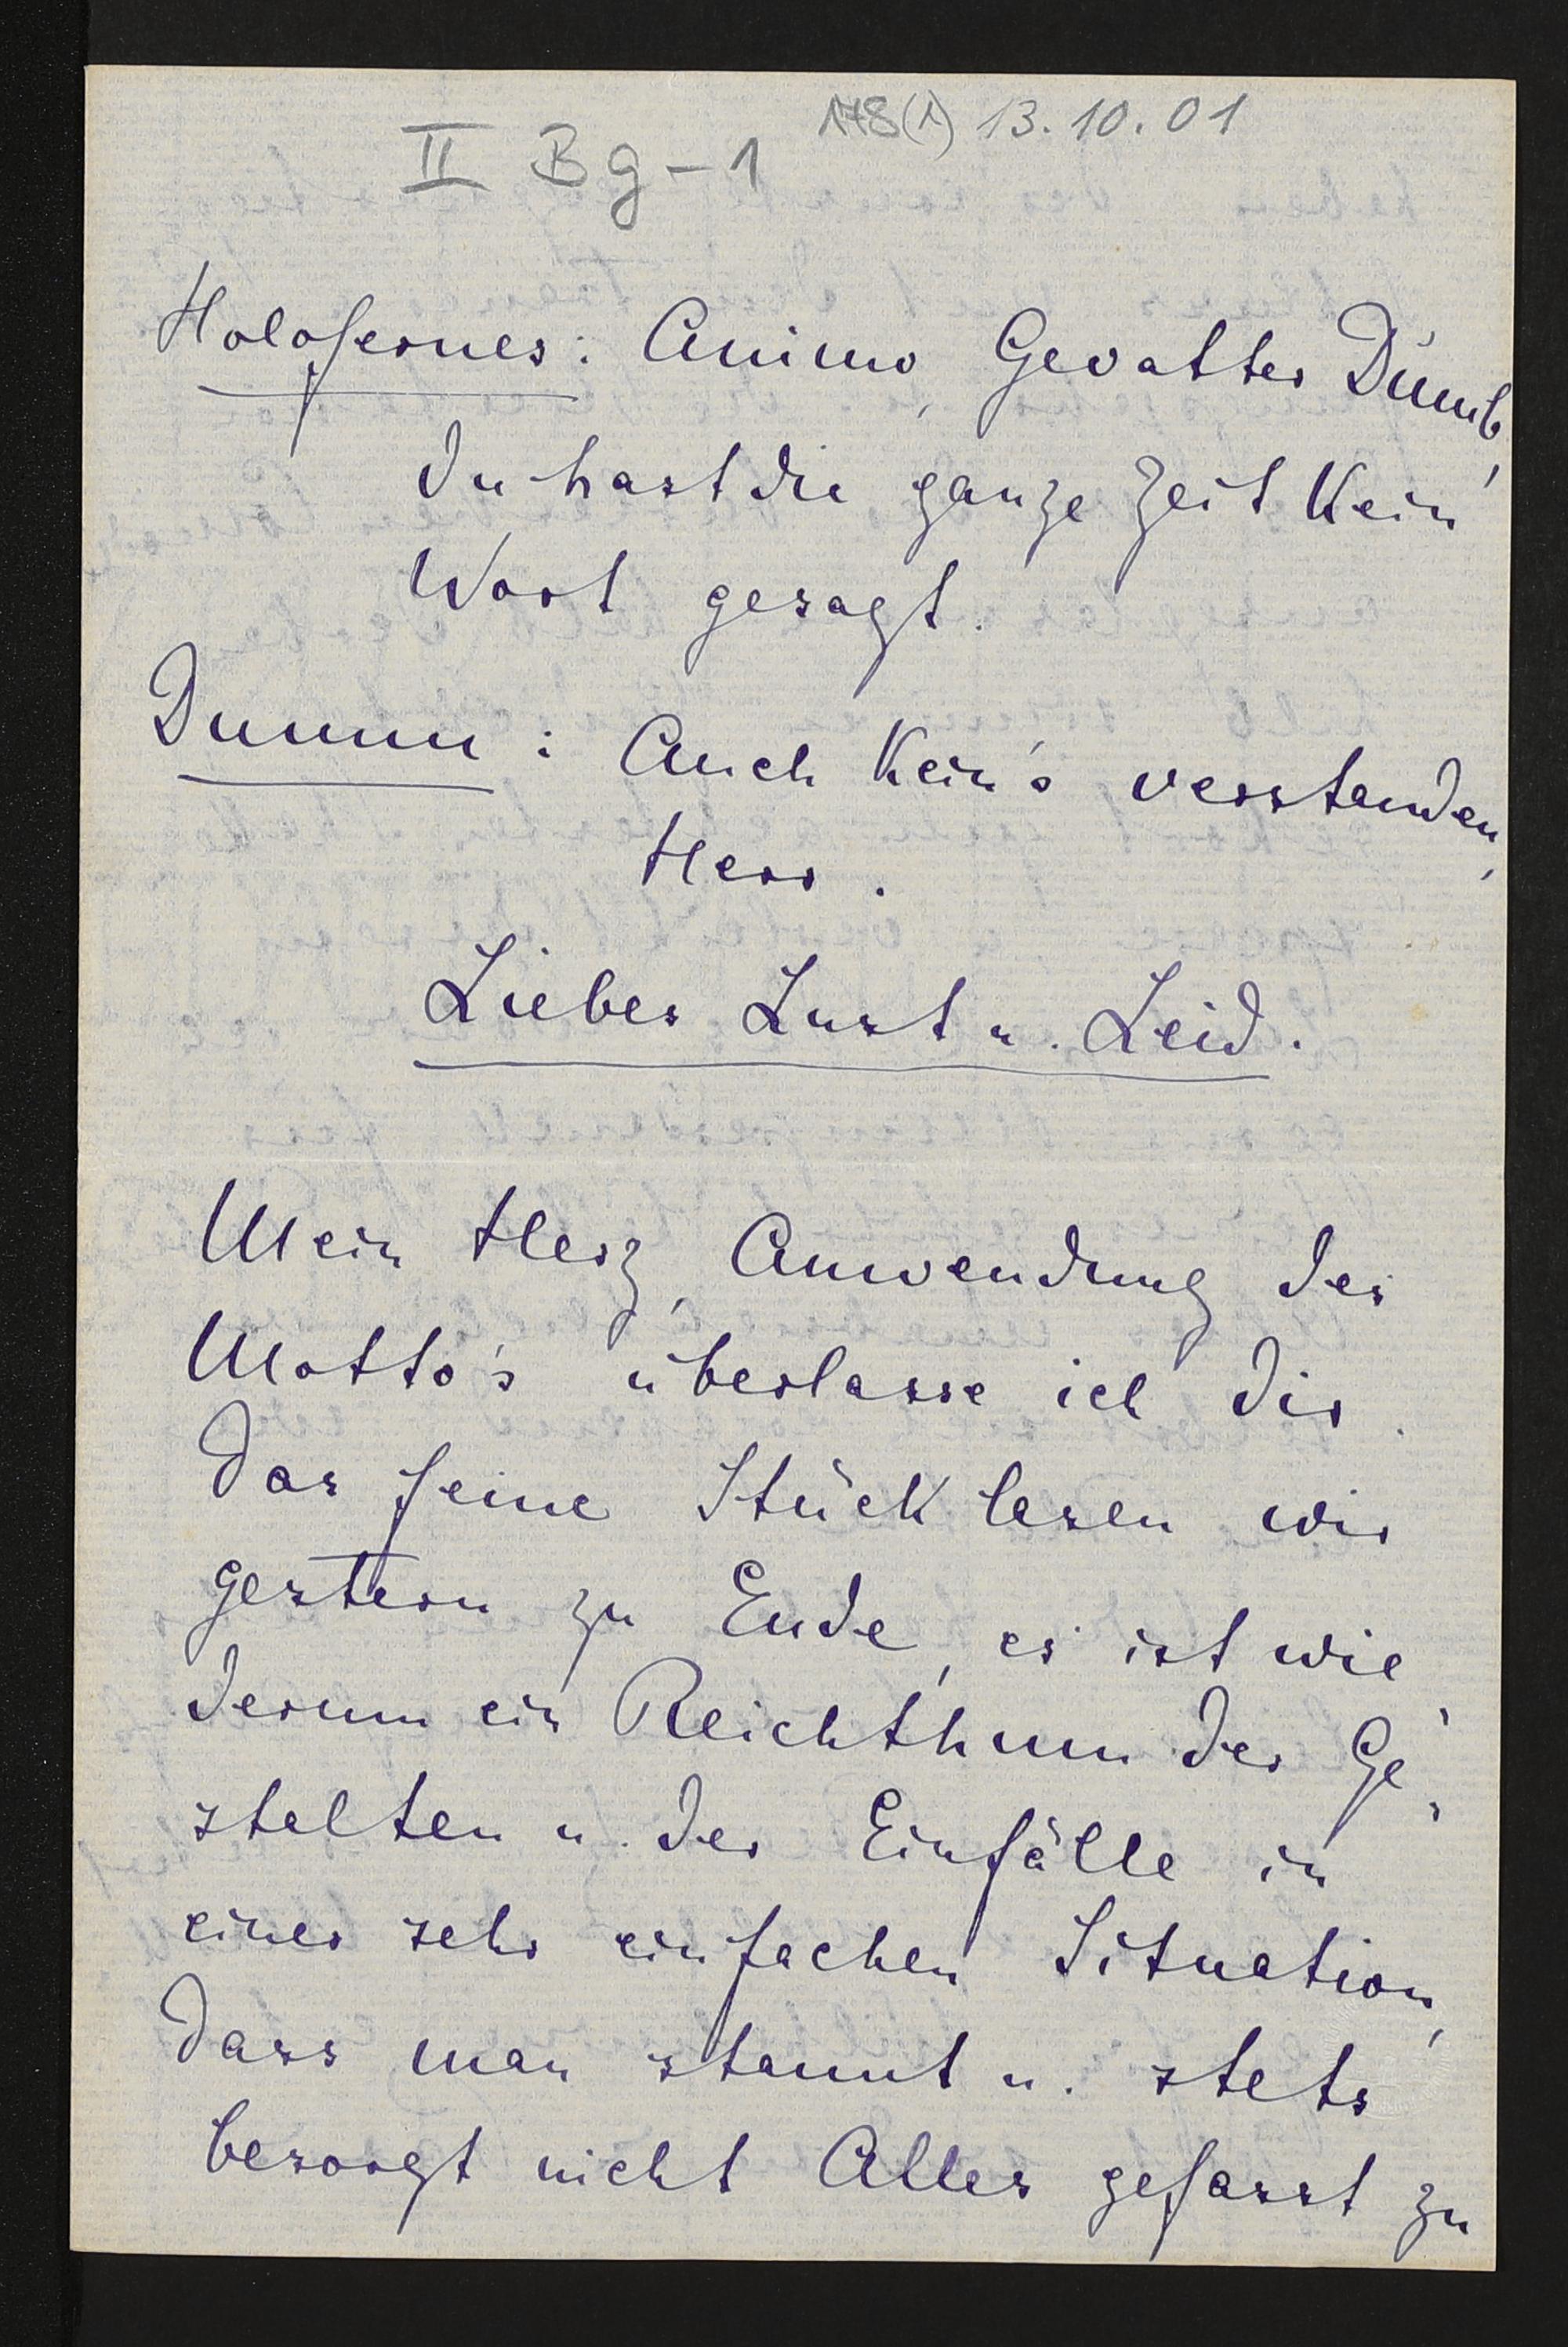 178(1) 13.10.01
II Bg-1
Holofernes: Animo, Gevatter Dumb,
du hast die ganze Zeit kein
Wort gesagt.
Dumm: Auch kein's verstanden,
Herr.
Liebes Lust u. Leid.
Mein Herz, Anwendung des
Motto's überlasse ich dir.
Das feine Stück lesen wir
gestern zu Ende, es ist wie
derum ein Reichthum der Ge-
stalten u. der Einfälle in
einer sehr einfachen Situation,
dass man staunt u. stets
besorgt nicht Alles gefasst zu